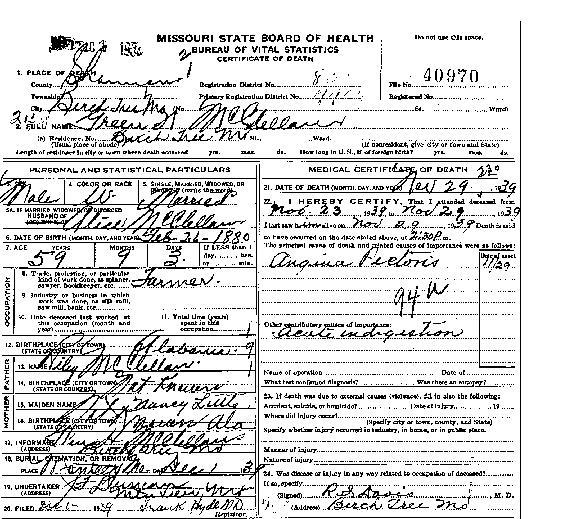 MISSOURI STATE BOARD OF HEALTH
BUREAU OF VITAL STATISTICS
CERTIFICATE OF DEATH
Do not use this space.
1. PLACE OF DEATH
County Shannon
Registration District No.
File No. 40970
Township
Primary Registration District No.
Registered No.
City Birch Tree Mo (No. St. Ward
2. FULL NAME Green McClellan
(a) Residence No. Birch Tree Mo St. Ward.
(Usual place of abode) (If nonresident, give city or town and State)
Length of residence in city or town where death occurred yrs. mos. ds. How long in U.S., if of foreign birth? yrs. mos. ds.
PERSONAL AND STATISTICAL PARTICULARS
3. SEX Male
4. COLOR OR RACE W
5. SINGLE, MARRIED, WIDOWED, OR DIVORCED Married
5A. IF MARRIED, WIDOWED, OR DIVORCED
HUSBAND OF Alice McClellan
6. DATE OF BIRTH (MONTH, DAY, AND YEAR) Feb 1880
7. AGE YEARS 59 MONTHS 9 DAYS 3 If LESS than 1 day, hrs. or min.
OCCUPATION
8. Trade, profession, or particular kind of work done, as spinner, sawyer, bookkeeper, etc. Farmer
9. Industry or business in which work was done, as silk mill, saw mill, bank, etc.
10. Date deceased last worked at this occupation (month and year)
11. Total time (years) spent in this occupation
12. BIRTHPLACE (CITY OR TOWN) (STATE OR COUNTRY) Alabama
FATHER
13. NAME McClellan
14. BIRTHPLACE (CITY OR TOWN) (STATE OR COUNTRY) Not Known
MOTHER
15. MAIDEN NAME Nancy Little
16. BIRTHPLACE (CITY OR TOWN) (STATE OR COUNTRY) Ala
17. INFORMANT McClellan
(ADDRESS) Birch Tree Mo
18. BURIAL, CREMATION, OR REMOVAL
PLACE DATE Dec 1 39
19. UNDERTAKER
(ADDRESS) Mtn View Mo
20. FILED Dec 1 1939 Frank Hyde MD
Registrar
MEDICAL CERTIFICATE OF DEATH
21. DATE OF DEATH (MONTH, DAY, AND YEAR) Nov 29 1939
22. I HEREBY CERTIFY, That I attended deceased from
Nov 23 1939 Nov 29 1939
I last saw alive on Nov 29 1939 Death is said
to have occurred on the date stated above, at 2:30 P.m.
The principal cause of death and related causes of importance were as follows:
Date of onset
Angina Pectoris 11/29
94 a
Other contributory causes of importance:
Acute indigestion
Name of operation Date of
What test confirmed diagnosis? Was there an autopsy?
23. If death was due to external causes (violence), fill in also the following:
Accident, suicide, or homicide? Date of injury 19
Where did injury occur?
(Specify city or town, county, and State)
Specify whether injury occurred in industry, in home, or in public place.
Manner of injury
Nature of injury
24. Was disease or injury in any way related to occupation of deceased?
If so, specify
(Signed) R S Davis, M. D.
(Address) Birch Tree Mo